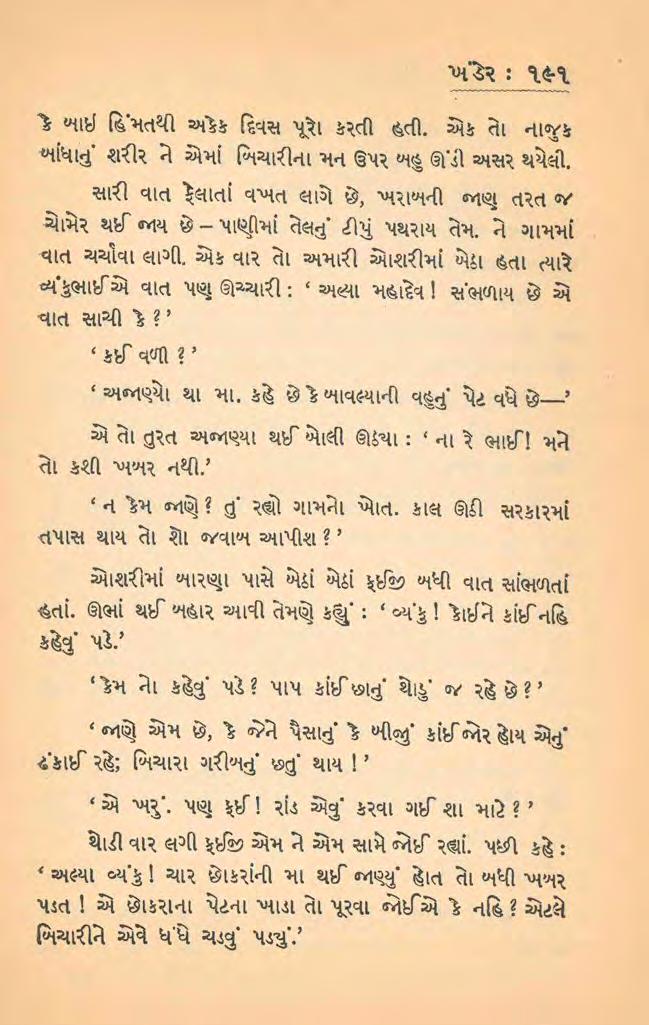 ખંડેર : ૧૯૧
કે બાઈ હિંમતથી અકેક દિવસ પૂરો કરતી હતી. એક તો નાજુક
બાંધાનું શરીર ને એમાં બિચારીના મન ઉપર બહુ ઊંડી અસર થયેલી.
સારી વાત ફેલાતાં વખત લાગે છે, ખરાબની જાણ તરત જ
ચોમેર થઈ જાય છે – પાણીમાં તેલનું ટીપું પથરાય તેમ. ને ગામમાં
વાત ચર્ચાવા લાગી. એક વાર તો અમારી ઓશરીમાં બેઠા હતા ત્યારે
વ્યંકુભાઈએ વાત પણ ઊચ્ચારી : ‘ અલ્યા મહાદેવ ! સંભળાય છે એ
વાત સાચી કે ? ’
‘ કઈ વળી ? ’
‘ અજાણ્યો થા મા. કહે છે કે બાવલ્યાની વહુનું પેટ વધે છે—’
એ તો તુરત અજાણ્યા થઈ બોલી ઊઠ્યા : ‘ ના રે ભાઈ! મને
તો કશી ખબર નથી.’
‘ ન કેમ જાણે ? તું રહ્યો ગામનો ખોત. કાલ ઊઠી સરકારમાં
તપાસ થાય તો શો જવાબ આપીશ ? ’
ઓશરીમાં બારણા પાસે બેઠાં બેઠાં ફઈજી બધી વાત સાંભળતાં
હતાં. ઊભાં થઈ બહાર આવી તેમણે કહ્યું : ‘ વ્યંકુ ! કોઈને કાંઈ નહિ
કહેવું પડે.’
‘ કેમ નો કહેવું પડે ? પાપ કાંઈ છાનું થોડું જ રહે છે ? ’
‘ જાણે એમ છે, કે જેને પૈસાનું કે બીજું કાંઈ જોર હોય એનું
ઢંકાઈ રહે; બિચારા ગરીબનું છતું થાય ! ’
‘ એ ખરું. પણ ફઈ ! રાંડ એવું કરવા ગઈ શા માટે ? ’
થોડી વાર લગી ફઈજી એમ ને એમ સામે જોઈ રહ્યાં. પછી કહે :
‘ અલ્યા વ્યંકુ ! ચાર છોકરાંની મા થઈ જાણ્યું હોત તો બધી ખબર
પડત ! એ છોકરાના પેટના ખાડા તો પૂરવા જોઈએ કે નહિ ? એટલે
બિચારીને એવે ધંધે ચડવું પડ્યું.’